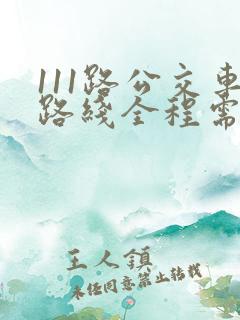 111路公交車
路綫全程需
王人鎮
未經同意禁止轉載